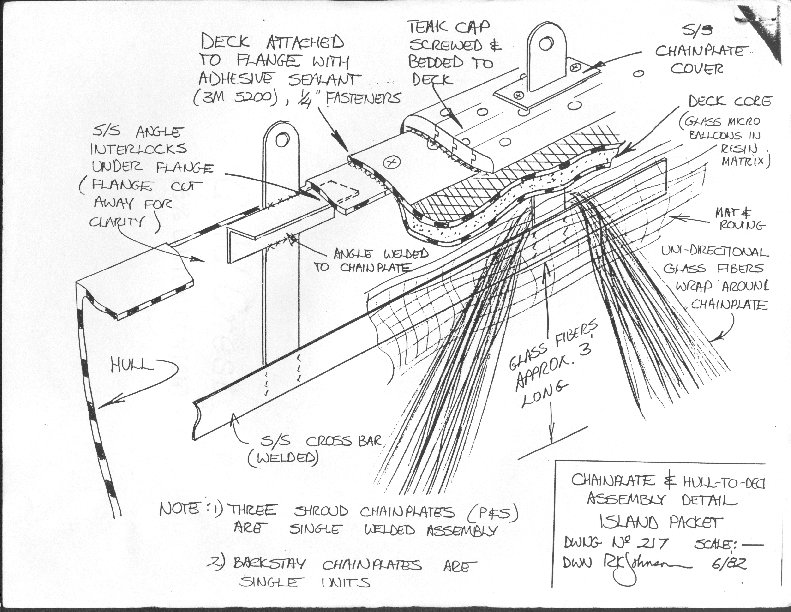 DECK ATTACHED
TO FLANGE WITH
ADHESIVE SEALANT ...
(3M 5200), 1/4" FASTENERS
TEAK CAP
SCREWED &
BEDDED TO
DECK
S/S
CHAINPLATE
COVER
DECK CORE
(GLASS MICRO
BALLOONS IN
RISIN
MATRIX)
S/S ANGLE
INTERLOCKS
UNDER FLANGE
(FLANGE CUT
AWAY FOR
CLARITY)
ANGLE WELDED
TO CHAINPLATE
MAT &
ROVING
UNI-DIRECTIONAL
GLASS FIBERS
WRAP AROUND
CHAINPLATE
HULL
GLASS FIBERS
APPROX. 3'
LONG
S/S CROSS BAR
(WELDED)
NOTE: 1) THREE SHROUD CHAINPLATES (P&S)
ARE SINGLE WELDED ASSEMBLY
2) BACKSTAY CHAINPLATES ARE
SINGLE UNITS
CHAINPLATE & HULL-TO-DECK
ASSEMBLY DETAIL
ISLAND PACKET
DWNG Nº 217 SCALE: —
DWN RKJohnson 6/82